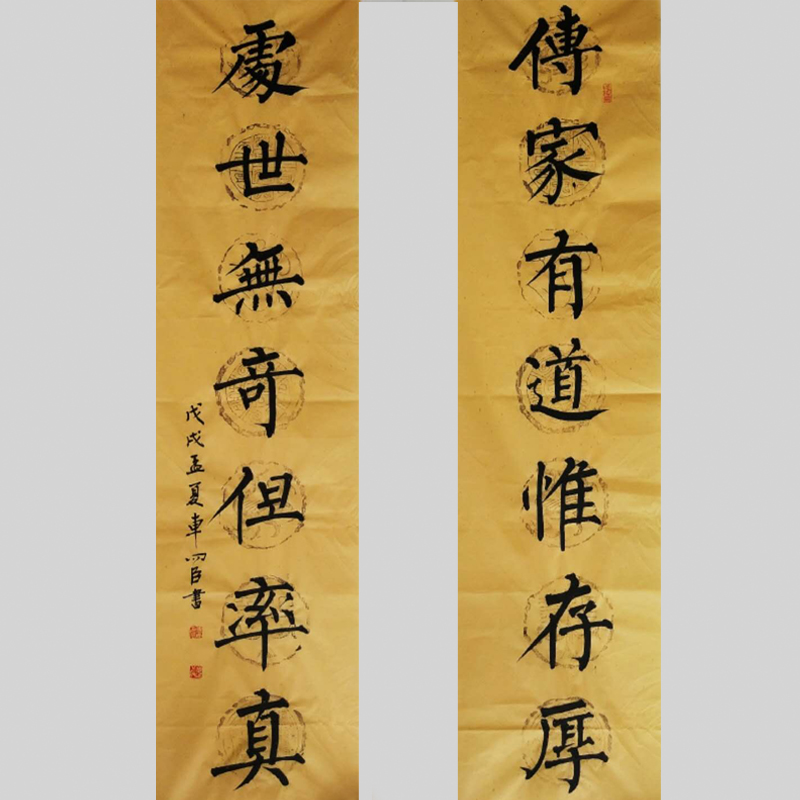 傳家有道惟存厚
處世無奇但率真
戊戌孟夏車四臣書